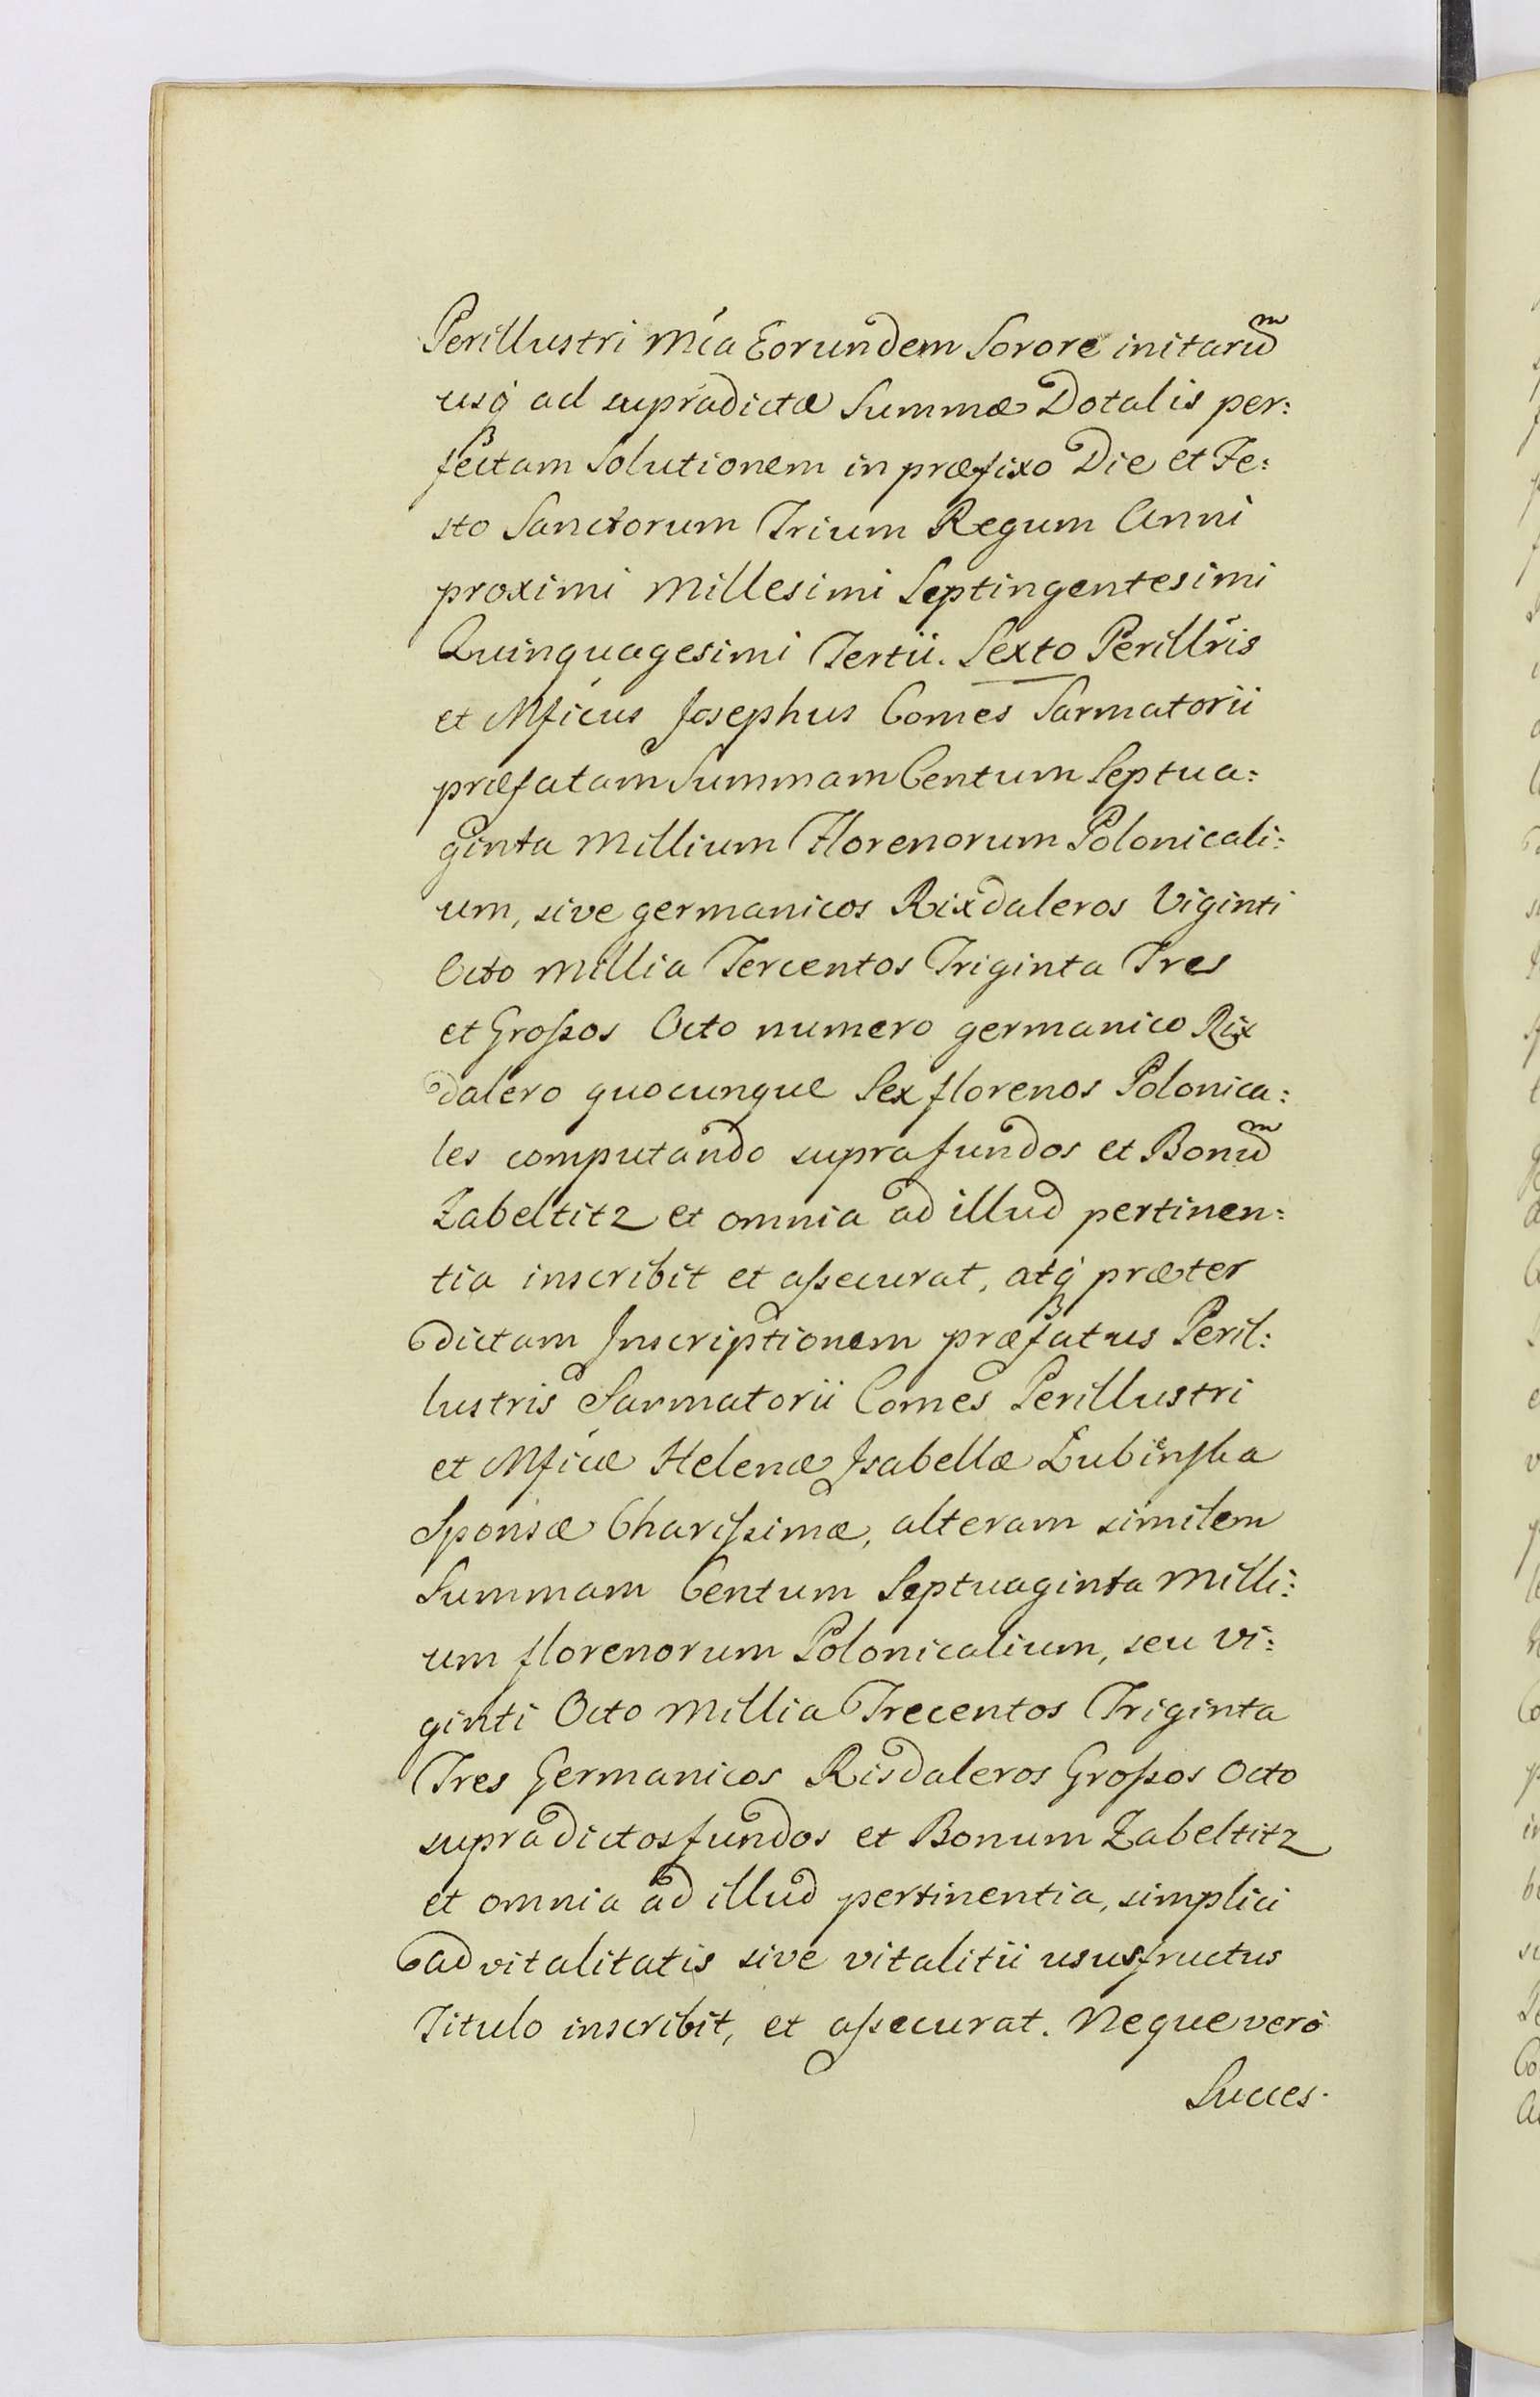 Perillustri Mĩa Eorundem Sorore initarũm
usq́ ad supradictæ Summæ Dotalis per:
fectam Solutionem in præfixo Die et Fe:
sto Sanctorum Trium Regum Anni
proximi Millesimi Septingentesimi
Quinquagesimi Tertii. Sexto Perillr̃is
et Mficus Josephus Comes Sarmatorii
præfatam Summam Centum Septua:
ginta Millium Florenorum Polonicali:
um, sive germanicos Rixdaleros Viginti
Octo Millia Tercentos Triginta Tres
et Großos Octo numero germanico Rix
dalero quocunque Sex florenos Polonica:
les computando supra fundos et Bonum
Zabeltitz et omnia ad illud pertinen:
tia inscribit et aßecurat, atq́ præter
dictam Inscriptionem præfatus Peril:
lustris Sarmatorii Comes Perillustri
et Mficæ Helenæ Isabellæ Łubieńska
Sponsæ Charißimæ, alteram similem
Summam Centum Septuaginta Milli:
um florenorum Polonicalium, seu vi:
ginti Octo Millia Trecentos Triginta
Tres Germanicos Risdaleros Großos Octo
supradictos fundos et Bonum Zabeltitz
et omnia ad illud pertinentia, simplici
advitalitatis sive vitalitii ususfructus
Titulo inscribit, et aßecurat. Neque verò
Succes.